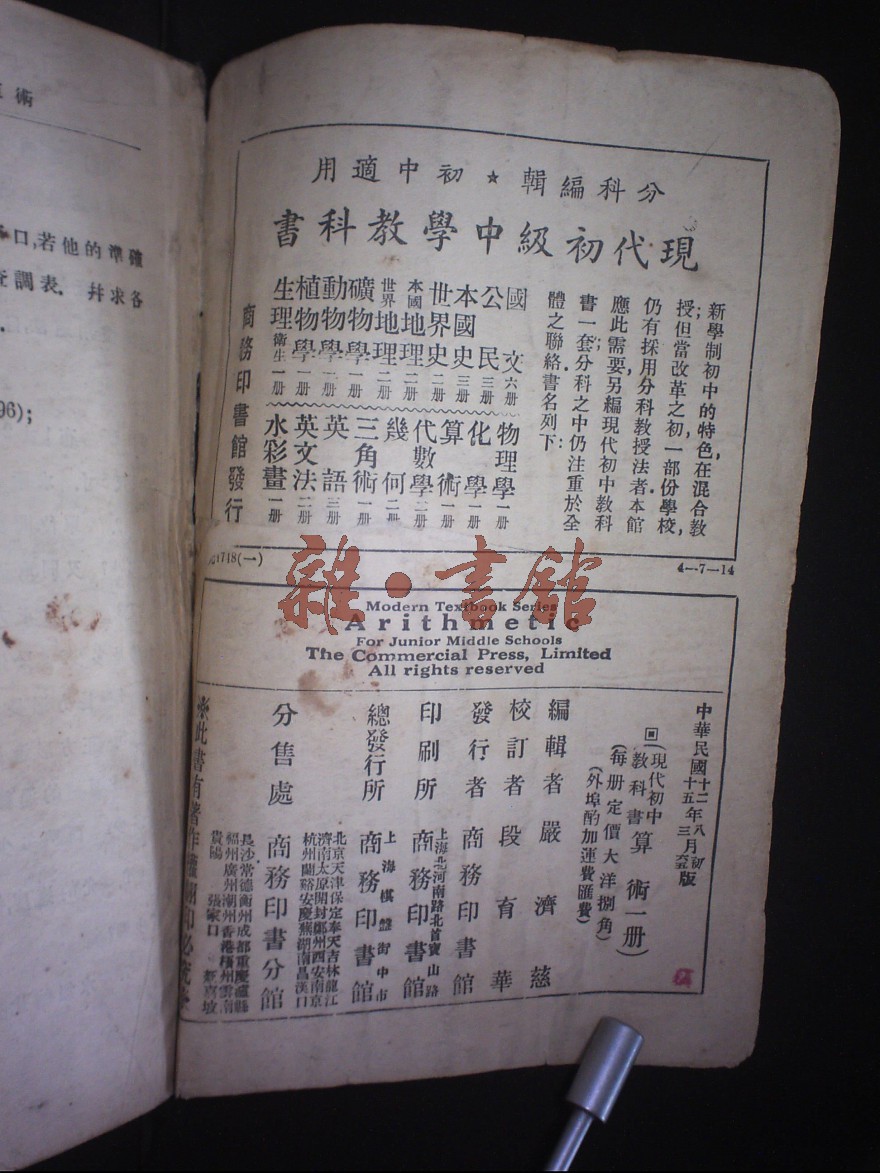 術
口,若他的準確
調表. 幷求各
96);
分科編輯★初中適用
現代初級中學教科書
新學制初中的特色,在混合教
授;但當改革之初,一部份學校,
仍有採用分科教授法者.本館
應此需要,另編現代初中教科
書一套;分科之中仍注重於全
體之聯絡.書名列下:
國文 六册
公民 三册
本國史 三册
世界史 二册
本國地理 二册
世界地理 二册
礦物學 一册
動物學 一册
植物學 一册
生理衛生 一册
物理學 一册
化學 一册
算術 一册
代數學 二册
幾何 一册
三角術 一册
英語 三册
英文法 二册
水彩畫 一册
商務印書館發行
1718(一)
4—7—14
雜·書館
Modern Textbook Series
Arithmetic
For Junior Middle Schools
The Commercial Press, Limited
All rights reserved
中華民國十二年八月初版
十五年三月
(現代初中教科書)算術一册)
(每册定價大洋捌角)
(外埠酌加運費匯費)
編輯者 嚴濟慈
校訂者 段育華
發行者 商務印書館
印刷所 上海北河南路北首寶山路 商務印書館
總發行所 上海棋盤街中市 商務印書館
分售處 商務印書分館
北京天津保定奉天吉林龍江
濟南太原開封鄭州西安南京
杭州蘭谿安慶蕪湖南昌漢口
長沙常德衡州成都重慶瀘縣
福州廣州潮州香港梧州雲南
貴陽 張家口 新嘉坡
此書有著作權翻印必究